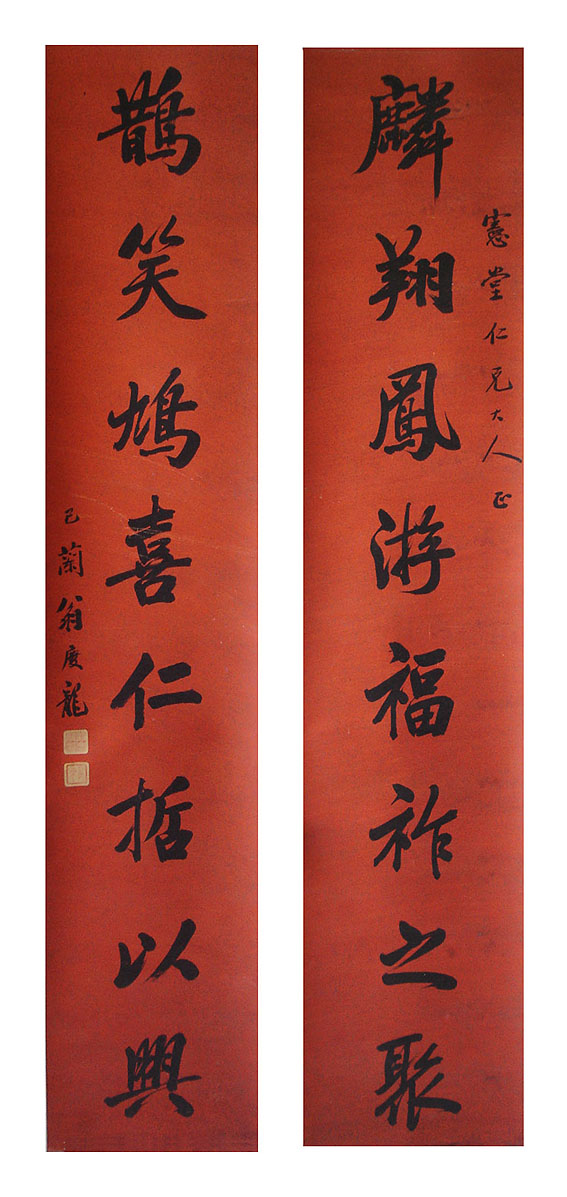 憲堂仁兄大人正
麟翔鳳游福祚之聚
鵲笑鳩喜仁哲以興
己蘭翁慶龍